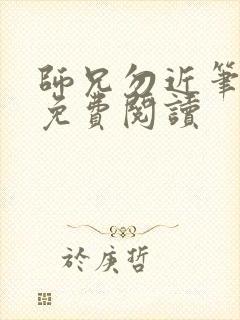 師兄勿近筆
免費閱讀
於庚哲